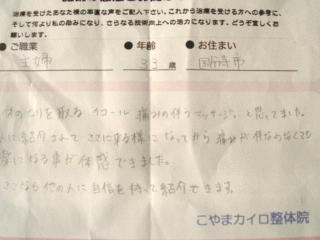 治療を受けたあなた様の率直な声をご記入下さい。これから治療を受ける方への参考に、
そして何より私の励みになり、さらなる技術向上への活力になります。どうぞ宜しくお
願い致します。
●ご職業 ●年齢 ●お住まい
主婦 33歳 国分寺市
体のこりを取る イコール 痛みの伴うマッサージ。と思ってました。
人に紹介されて ここに来る様に なってから 痛みが 伴わなくても
楽になる事が 体感できました。
ここなら 他の人に 自信を持って 紹介できます。
こやまカイロ整体院